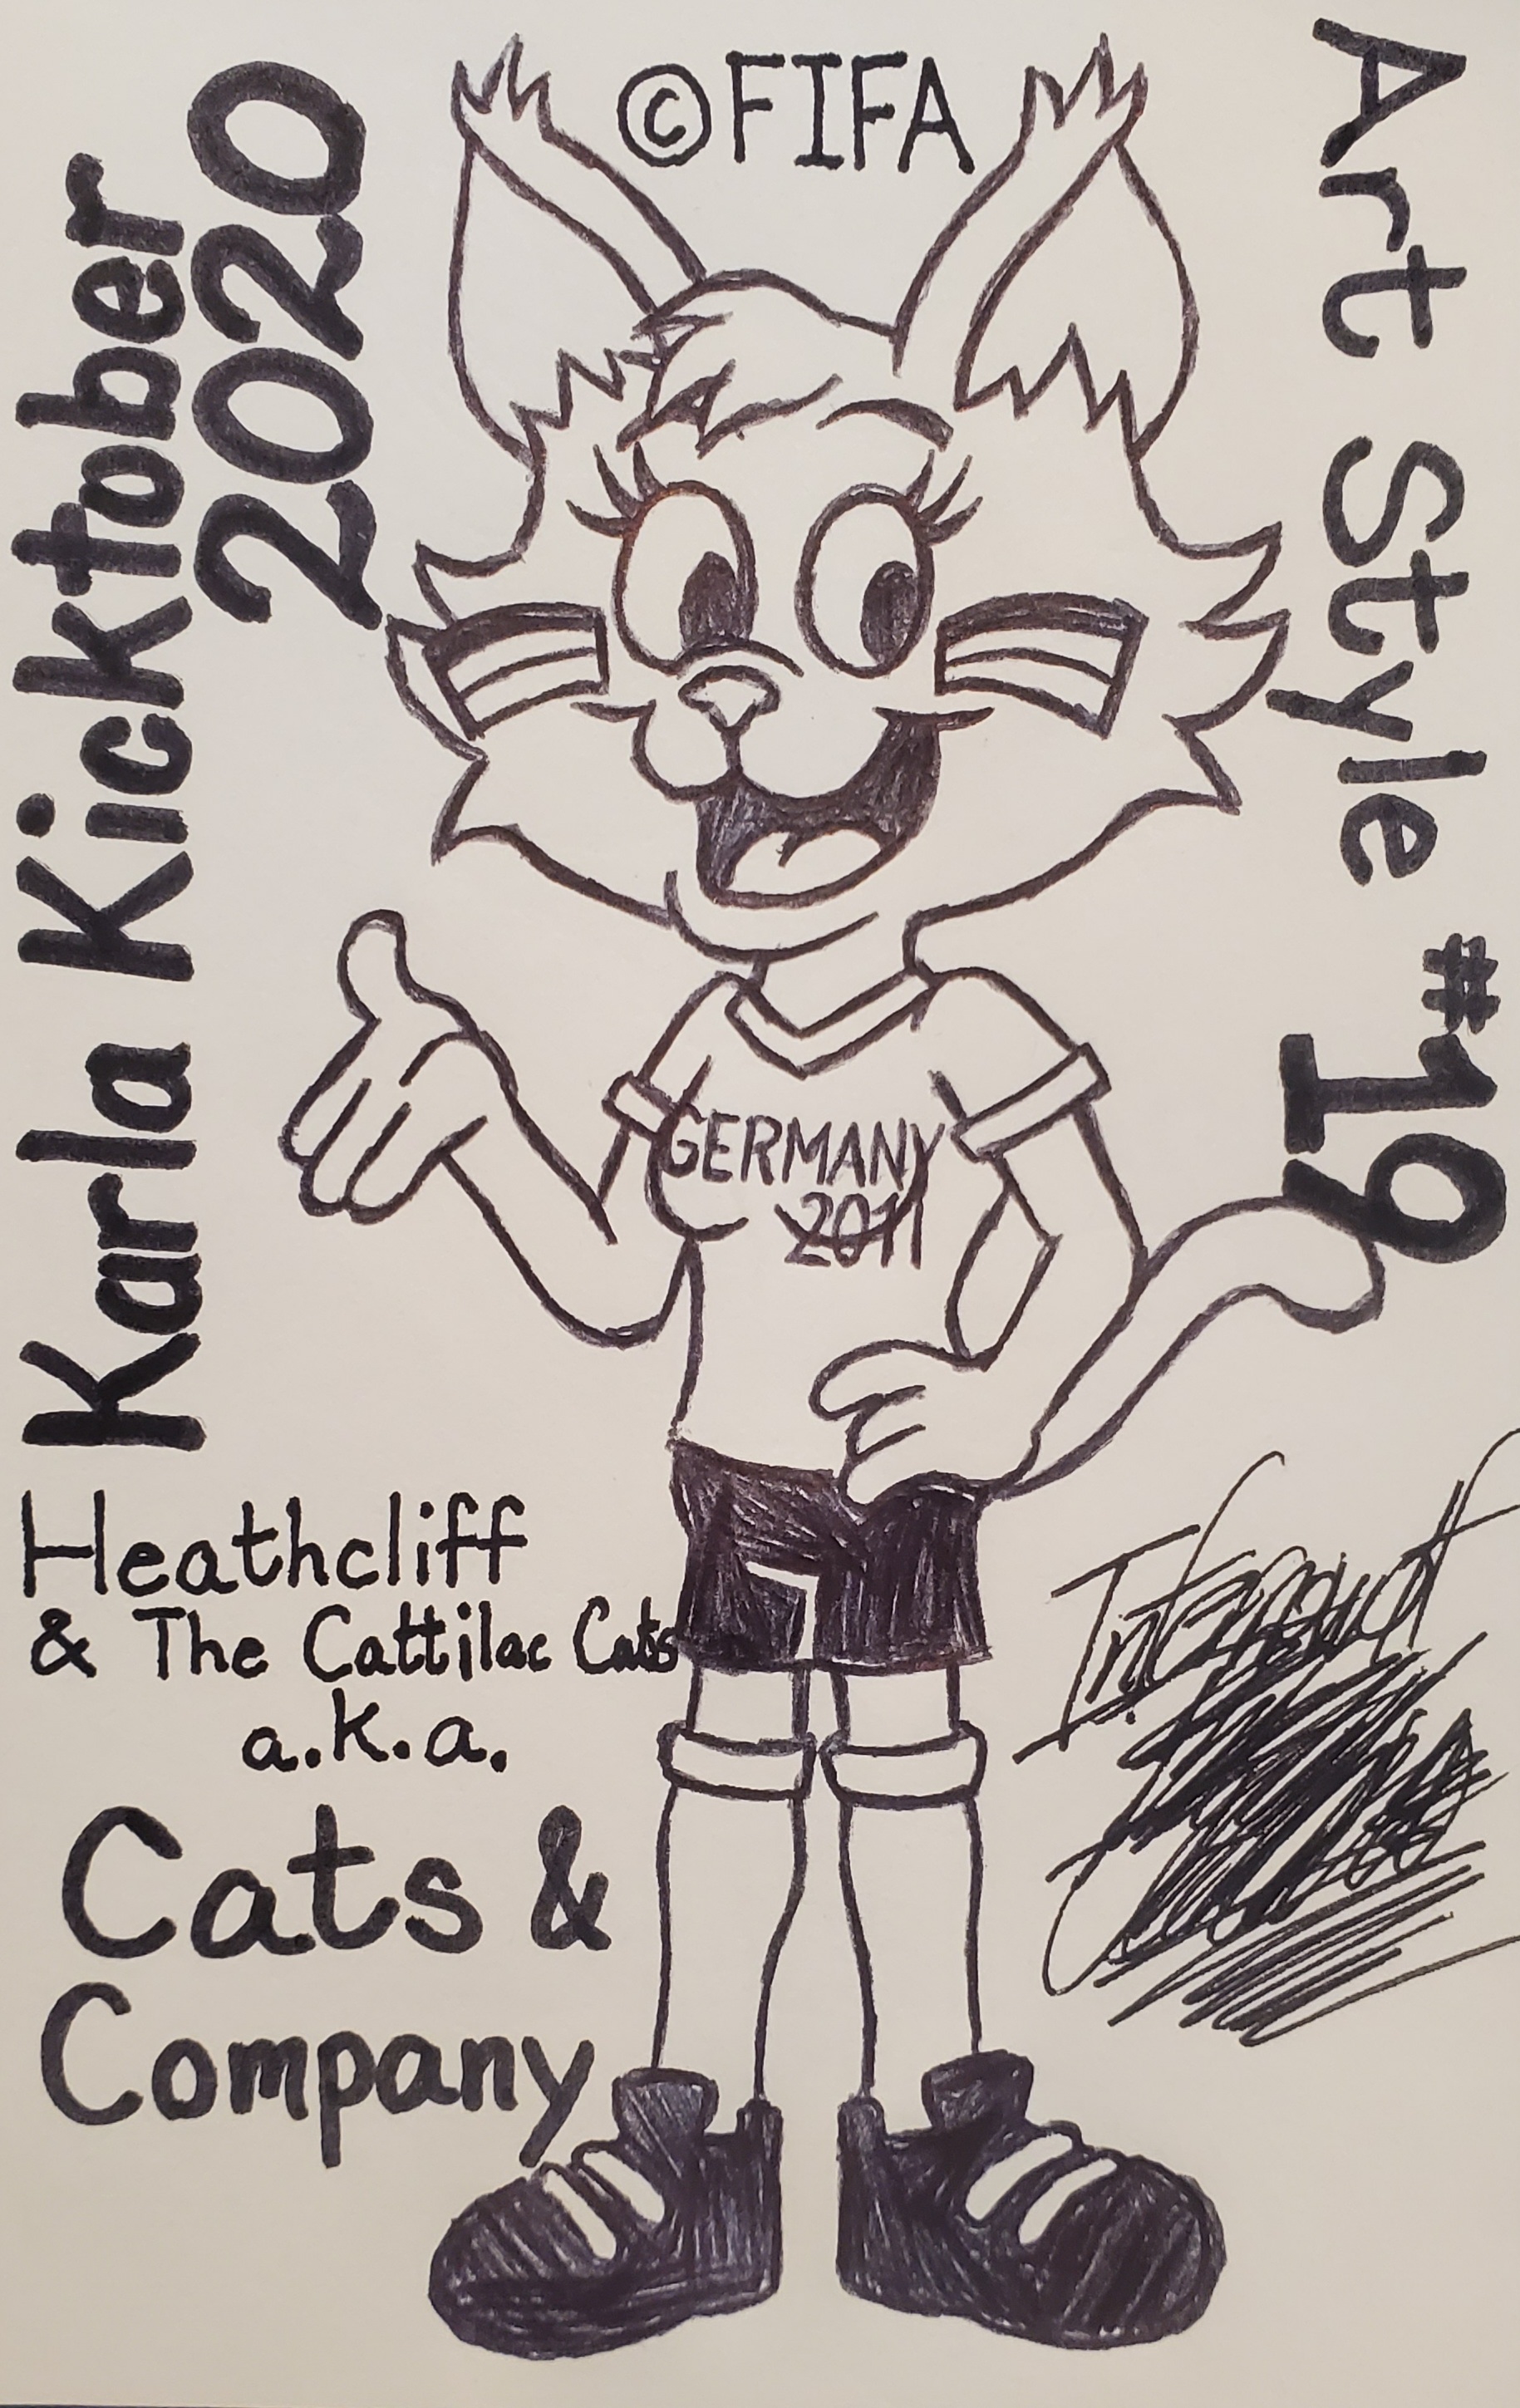 ©FIFA
Karla Kicktober
2020
Art Style #19
GERMANY
2011
Heathcliff
& The Cattilac Cats
a.k.a.
Cats &
Company